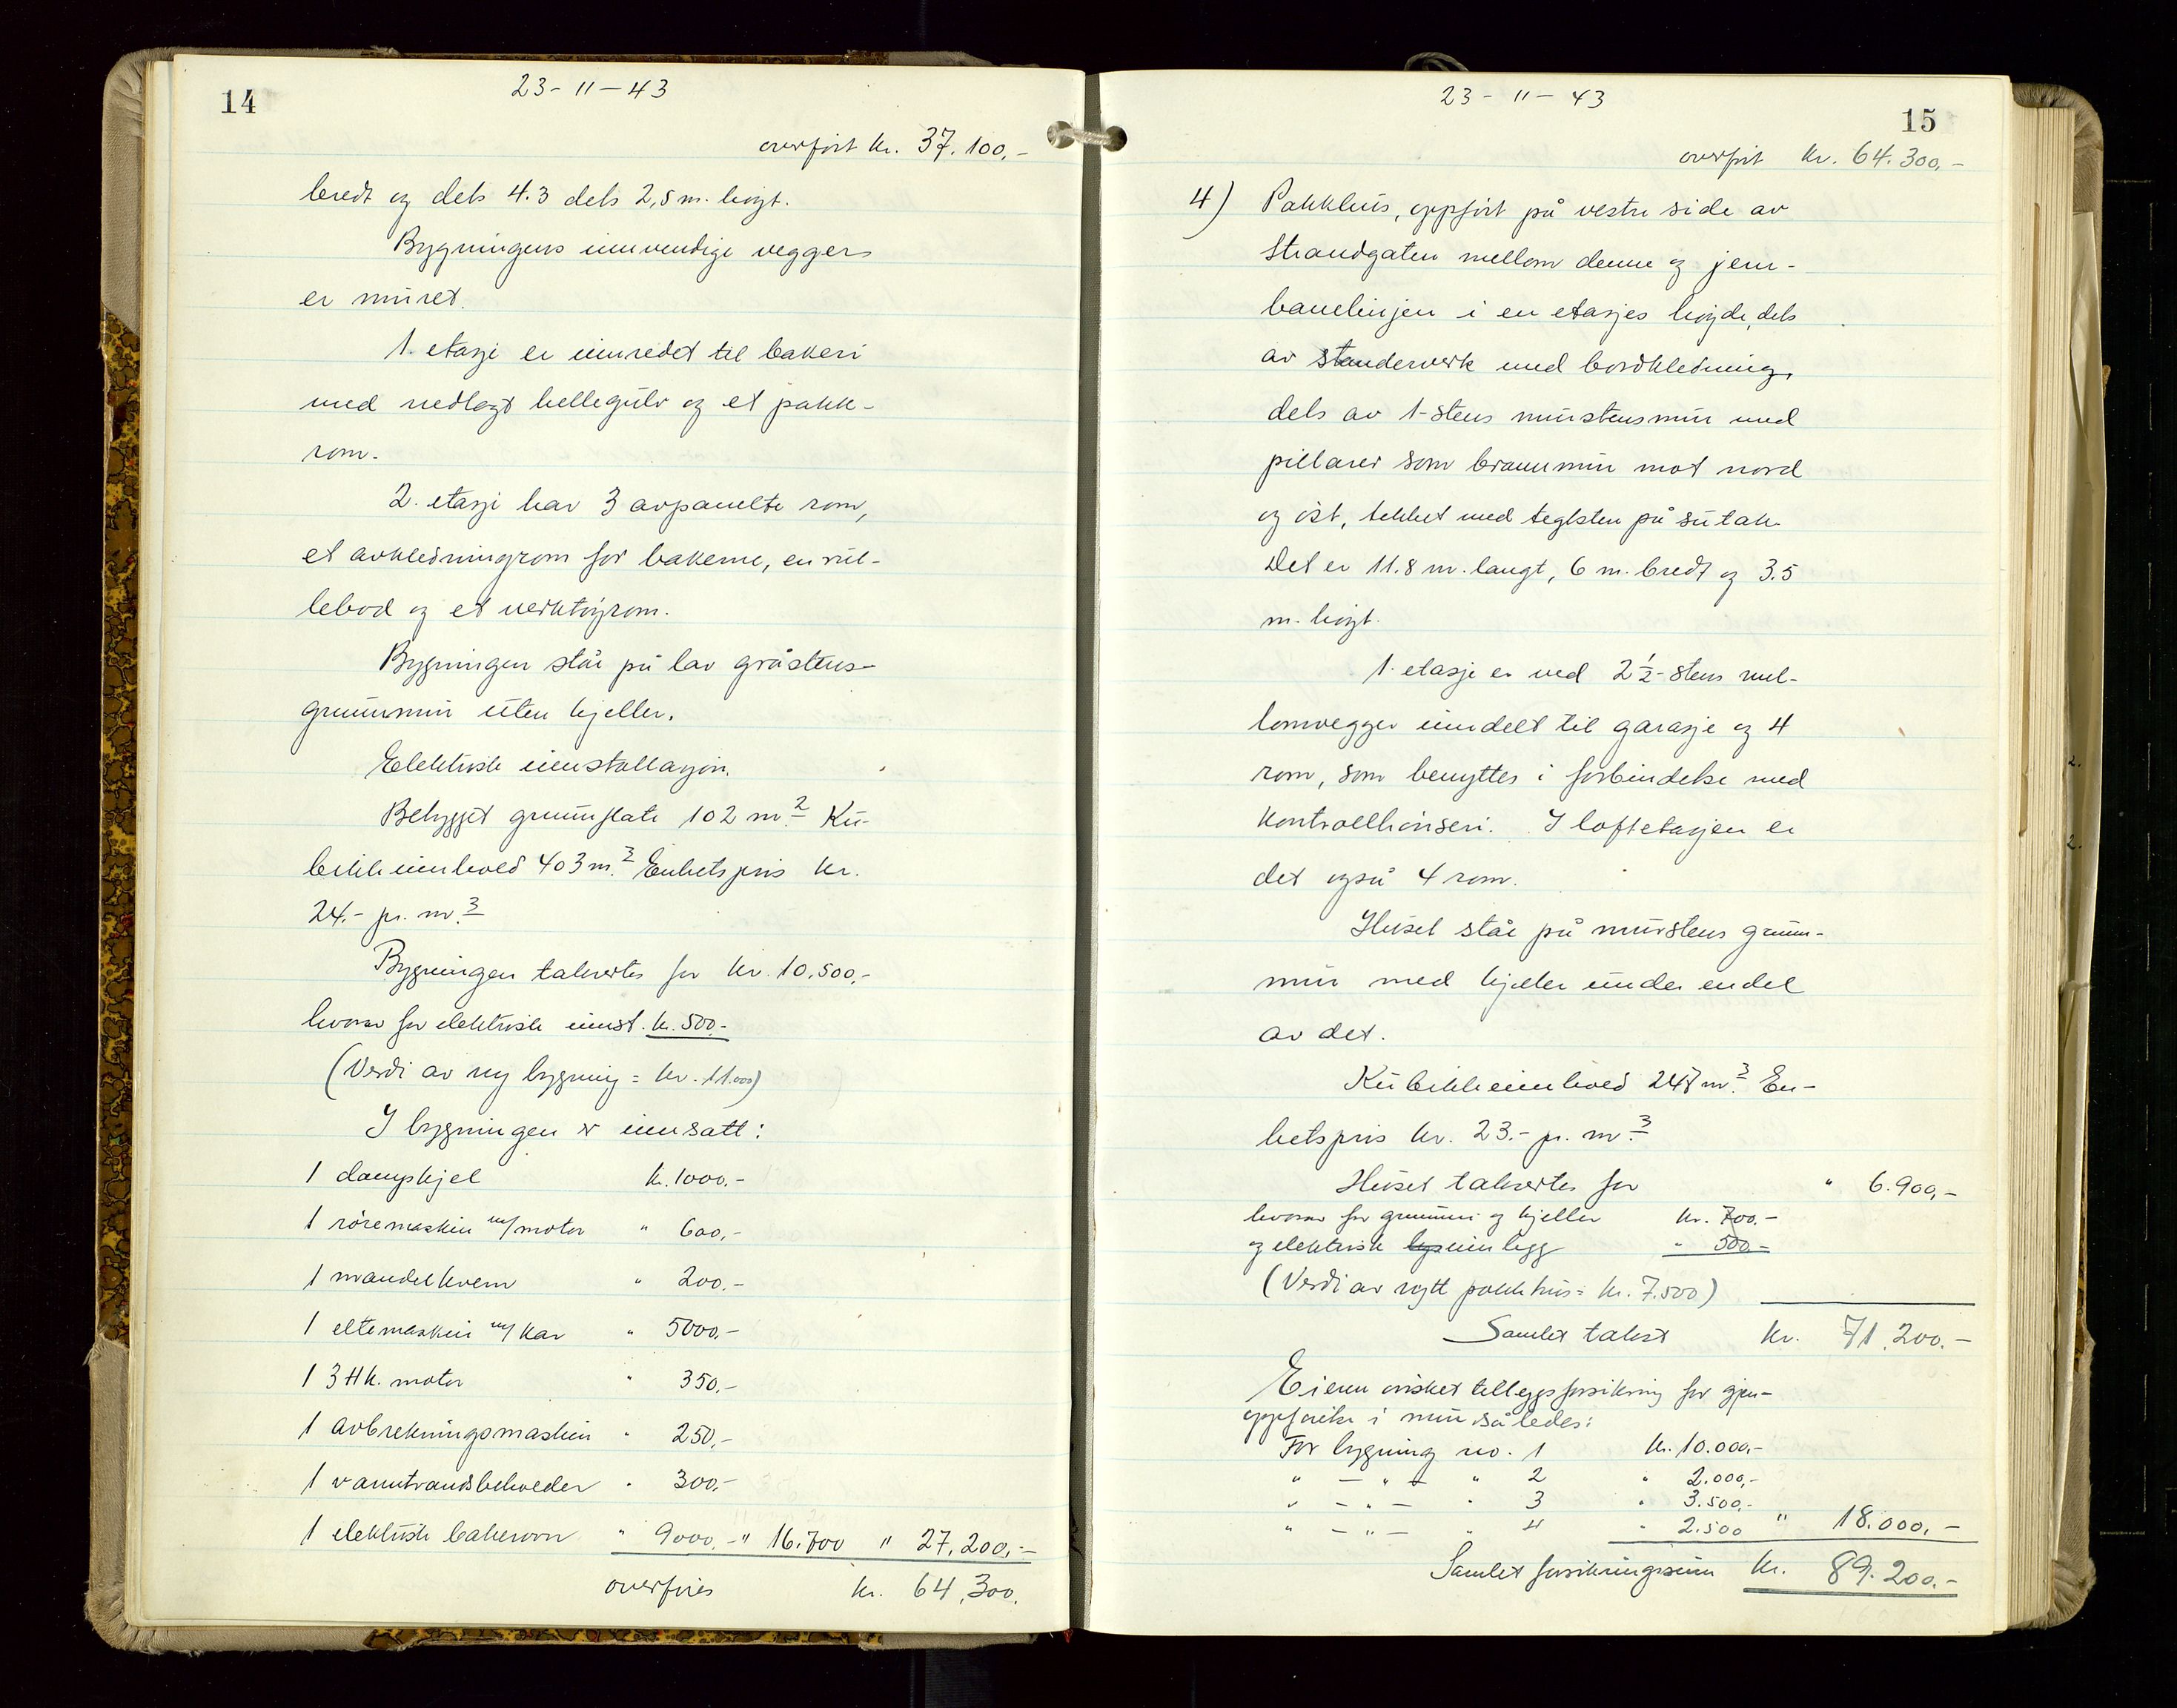 14
23-11-43
overført kr. 37.100,-
bredt og dels 4.3 dels 2,5 m. høyt.
Bygningens innvendige vegger
er muret.
1. etasje er innredet til bakeri
med nedlagt hellegulv og et pakk-
rom.
2. etasje har 3 avpanelte rom,
et avkledningrom for bakerne, en rul-
lebod og et verktøyrom.
Bygningen står på lav gråstens-
grunnmur uten kjeller.
Elektrisk innstallasjon.
Bebygget grunnflate 102 m.2 Ku-
bikkinnhold 403 m.3 Enhetspris kr.
24.- pr. m.3
Bygningen takseres for kr. 10.500,-
hvorav for elektrisk innst. kr. 500.-
(Verdi av ny bygning = kr. 11.000)
I bygningen er innsatt:
1 dampkjel kr. 1000.-
1 røremaskin m/motor " 600,-
1 mandelkvern " 200.-
1 eltemaskin m/kar " 5000,-
1 3 Hk. motor " 350,-
1 avbrekningsmaskin " 250,-
1 varmtvandsbeholder " 300,-
1 elektrisk bakerovn " 9000,- " 16.700 " 27.200,-
overføres kr. 64.300.
23-11-43
15
overført kr. 64.300,-
4) Pakkhus, oppført på vestre side av
Strandgaten mellom denne og jern-
banelinjen i en etasjes høyde, dels
av stenderverk med bordkledning,
dels av 1-stens murstensmur med
pillarer som brannmur mot nord
og øst, tekket med teglsten på sutak.
Det er 11.8 m. langt, 6 m. bredt og 3.5
m. høyt.
1. etasje er ved 2 1/2-stens mel-
lomvegger inndelt til garasje og 4
rom, som benyttes i forbindelse med
kontrollhønseri. I loftetasjen er
det også 4 rom.
Huset står på murstens grunn-
mur med kjeller under endel
av det.
Kubikkinnhold 247 m.3 En-
hetspris kr. 23.- pr. m.3
Huset takseres for " 6.900,-
hvorav for grunnmur og kjeller kr. 700.-
og elektrisk lysinnlegg " 500.-
(Verdi av nytt pakkhus = kr. 7.500)
Samlet takst kr. 71.200.-
Eieren ønsket tilleggsforsikring for gjen-
oppførelse i mur således:
For bygning no. 1 kr. 10.000,-
" - " - " 2 " 2.000,-
" - " - " 3 " 3.500,-
" - " - " 4 " 2.500 " 18.000,-
Samlet forsikringssum kr. 89.200.-